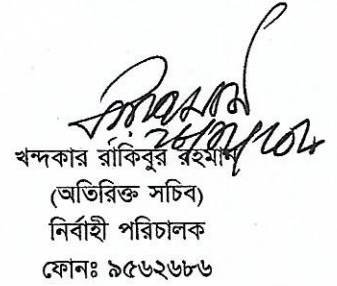 খন্দকার রাকিবুর রহমান
(অতিরিক্ত সচিব)
নির্বাহী পরিচালক
ফোনঃ ৯৫৬২৬৮৬